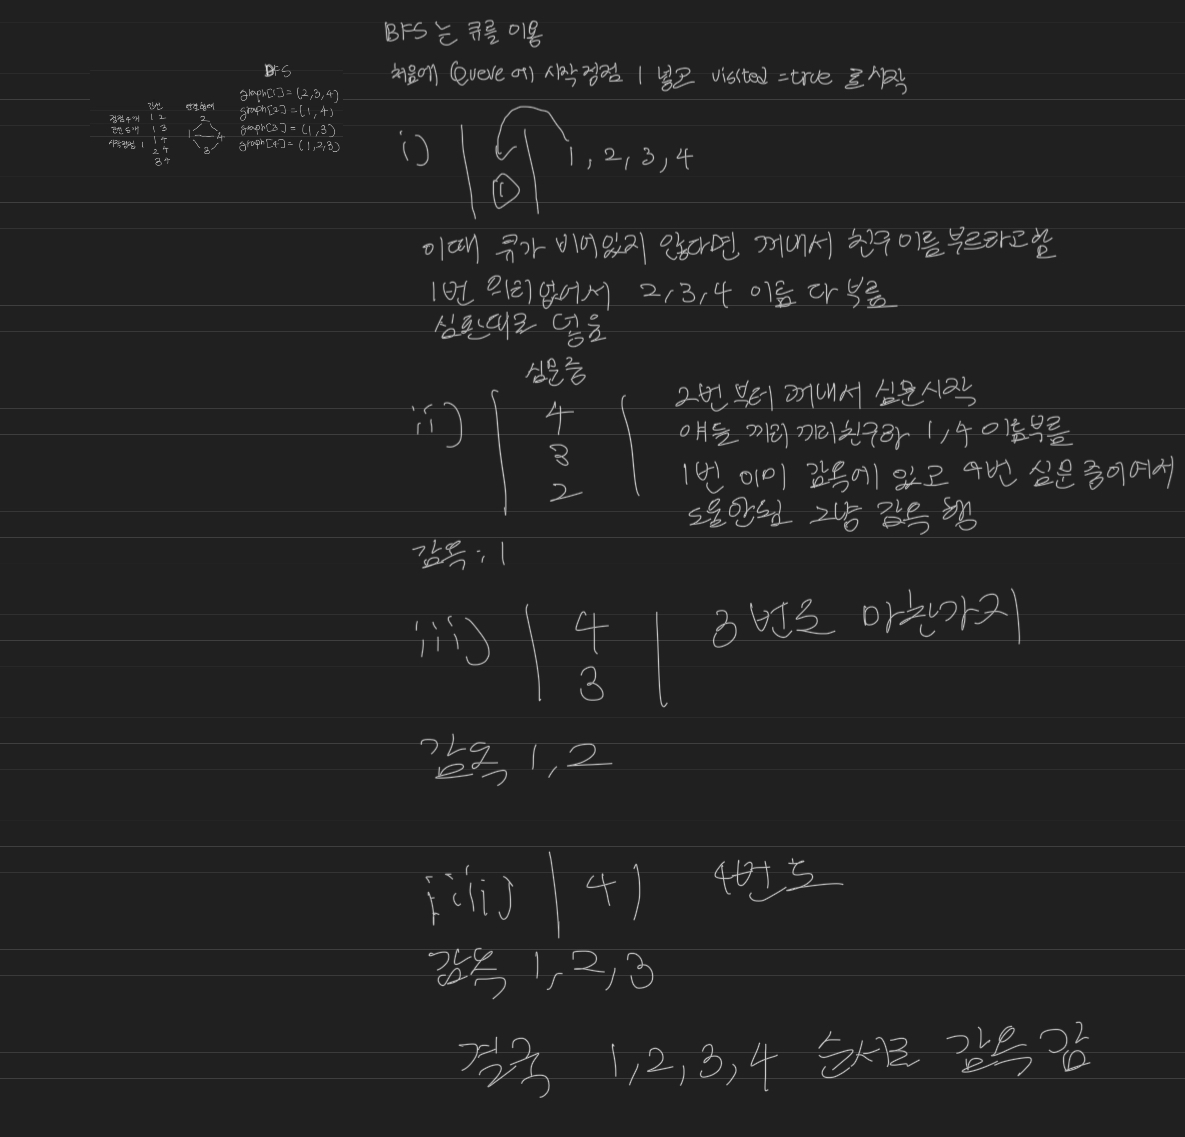 BFS는 큐를 이용
처음에 Queue에 시작정점 1 넣고 visited = true 로 시작
BFS
간선
정점 4개 1 2
간선 5개 1 3
시작정점 1 1 4
2 4
3 4
연결형태
2
1 4
3
graph[1] = (2,3,4)
graph[2] = (1,4)
graph[3] = (1,3)
graph[4] = (1,2,3)
i) 1, 2, 3, 4
①
이때 큐가 비어있지 않다면 꺼내서 친구 이름 부르라고함
1번 의리 없어서 2,3,4 이름 다 부름
심문대로 넣음
심문중
ii) 4
3
2
2번부터 꺼내서 심문시작
얘들 끼리끼리 친구라 1,4 이름부름
1번 이미 감옥에 있고 4번 심문중이여서
도움안됨 그냥 감옥 행
감옥 : 1
iii) 4
3
3번도 마찬가지
감옥 1,2
iiii) 4 4번도
감옥 1,2,3
결국 1,2,3,4 순서로 감옥 감